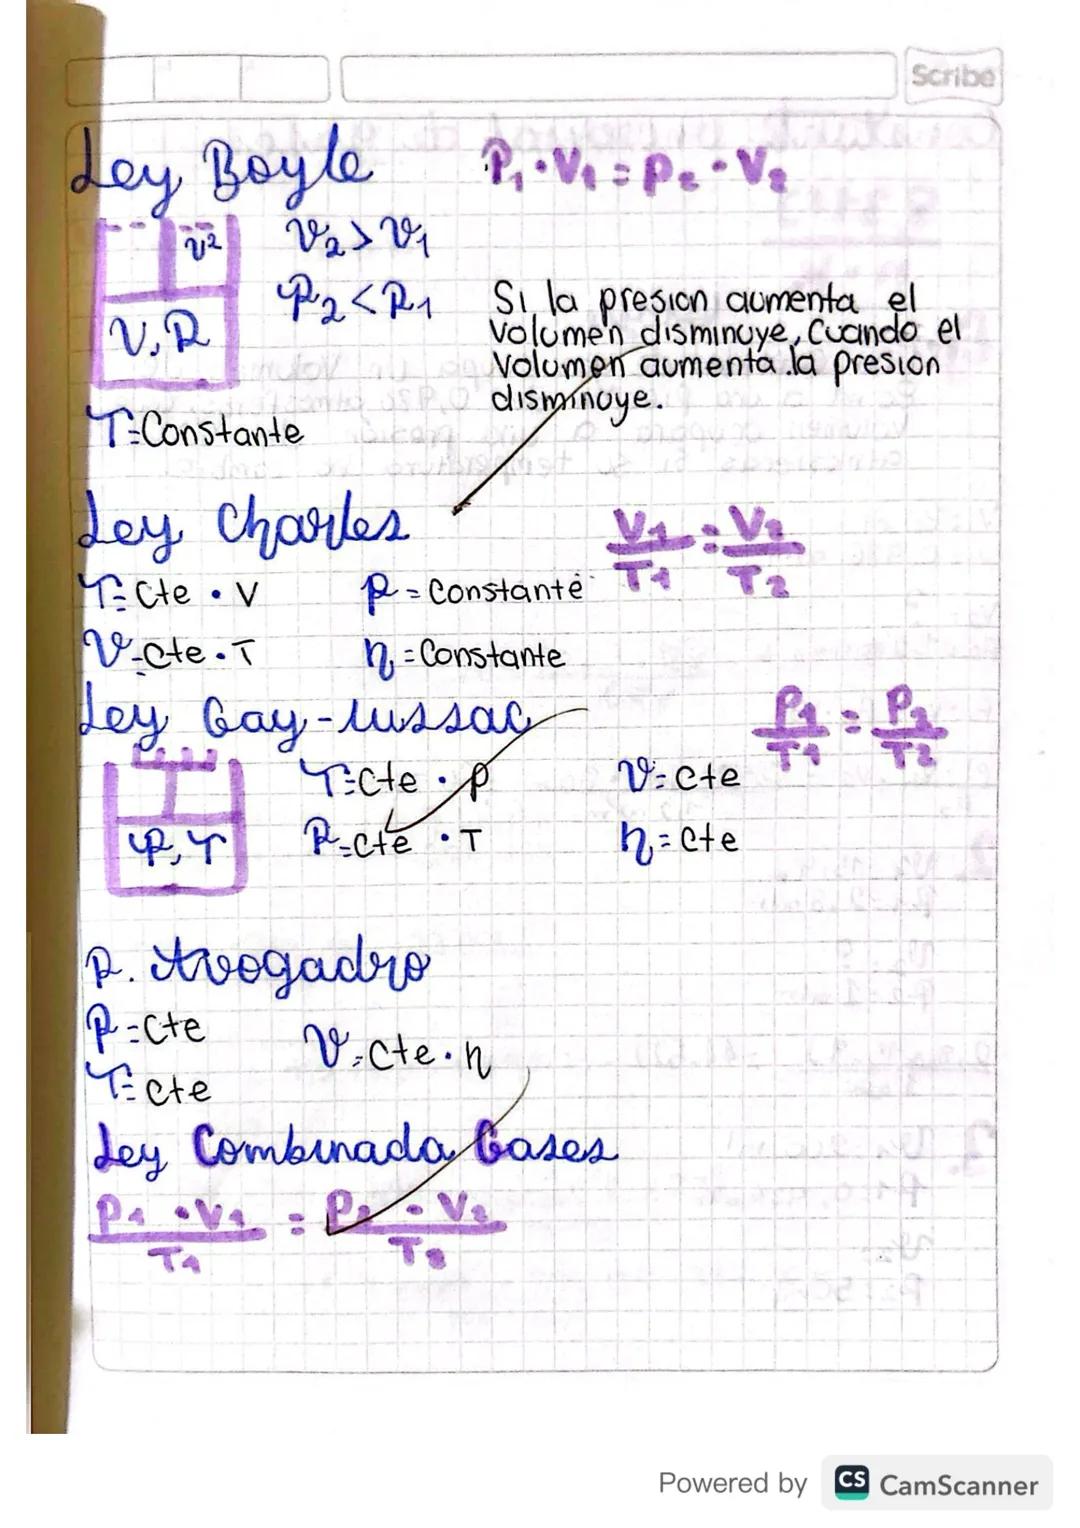 Scribe
Ley Boyle P₁·V₁=P₂·V₂
V₂>V₁
V²
P₂<P₁
V,P
Si la presion aumenta el
Volumen disminuye, Cuando el
Volumen aumenta la presion
disminuye.
T=Constante
Ley Charles V1/T1=V2/T2
T=Cte · V P=Constante
V=Cte·T n=Constante
Ley Gay-lussac P1/T1=P2/T2
T=Cte · P V=Cte
P,T P=Cte · T n=Cte
P. Avogadro
P=Cte
V=Cte·n
T=Cte
Ley Combinada Gases
P1·V1/T1 = P2·V2/T2
Powered by CS CamScanner